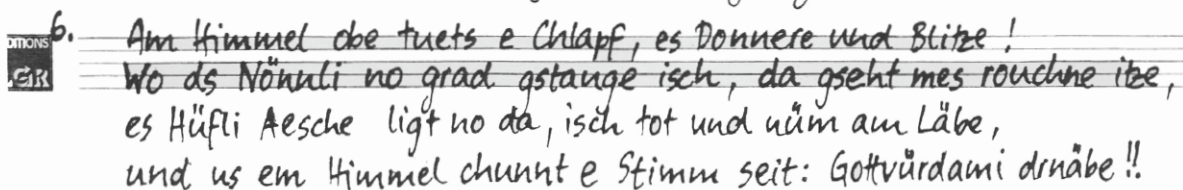 6. Am Himmel obe tuets e Chlapf, es Donnere und Blitze!
Wo ds Nönnli no grad gstange isch, da gseht mes rouchne itze,
es Hüfli Aesche ligt no da, isch tot und nüm am Läbe,
und us em Himmel chunnt e Stimm seit: Gottvürdami drnäbe!!